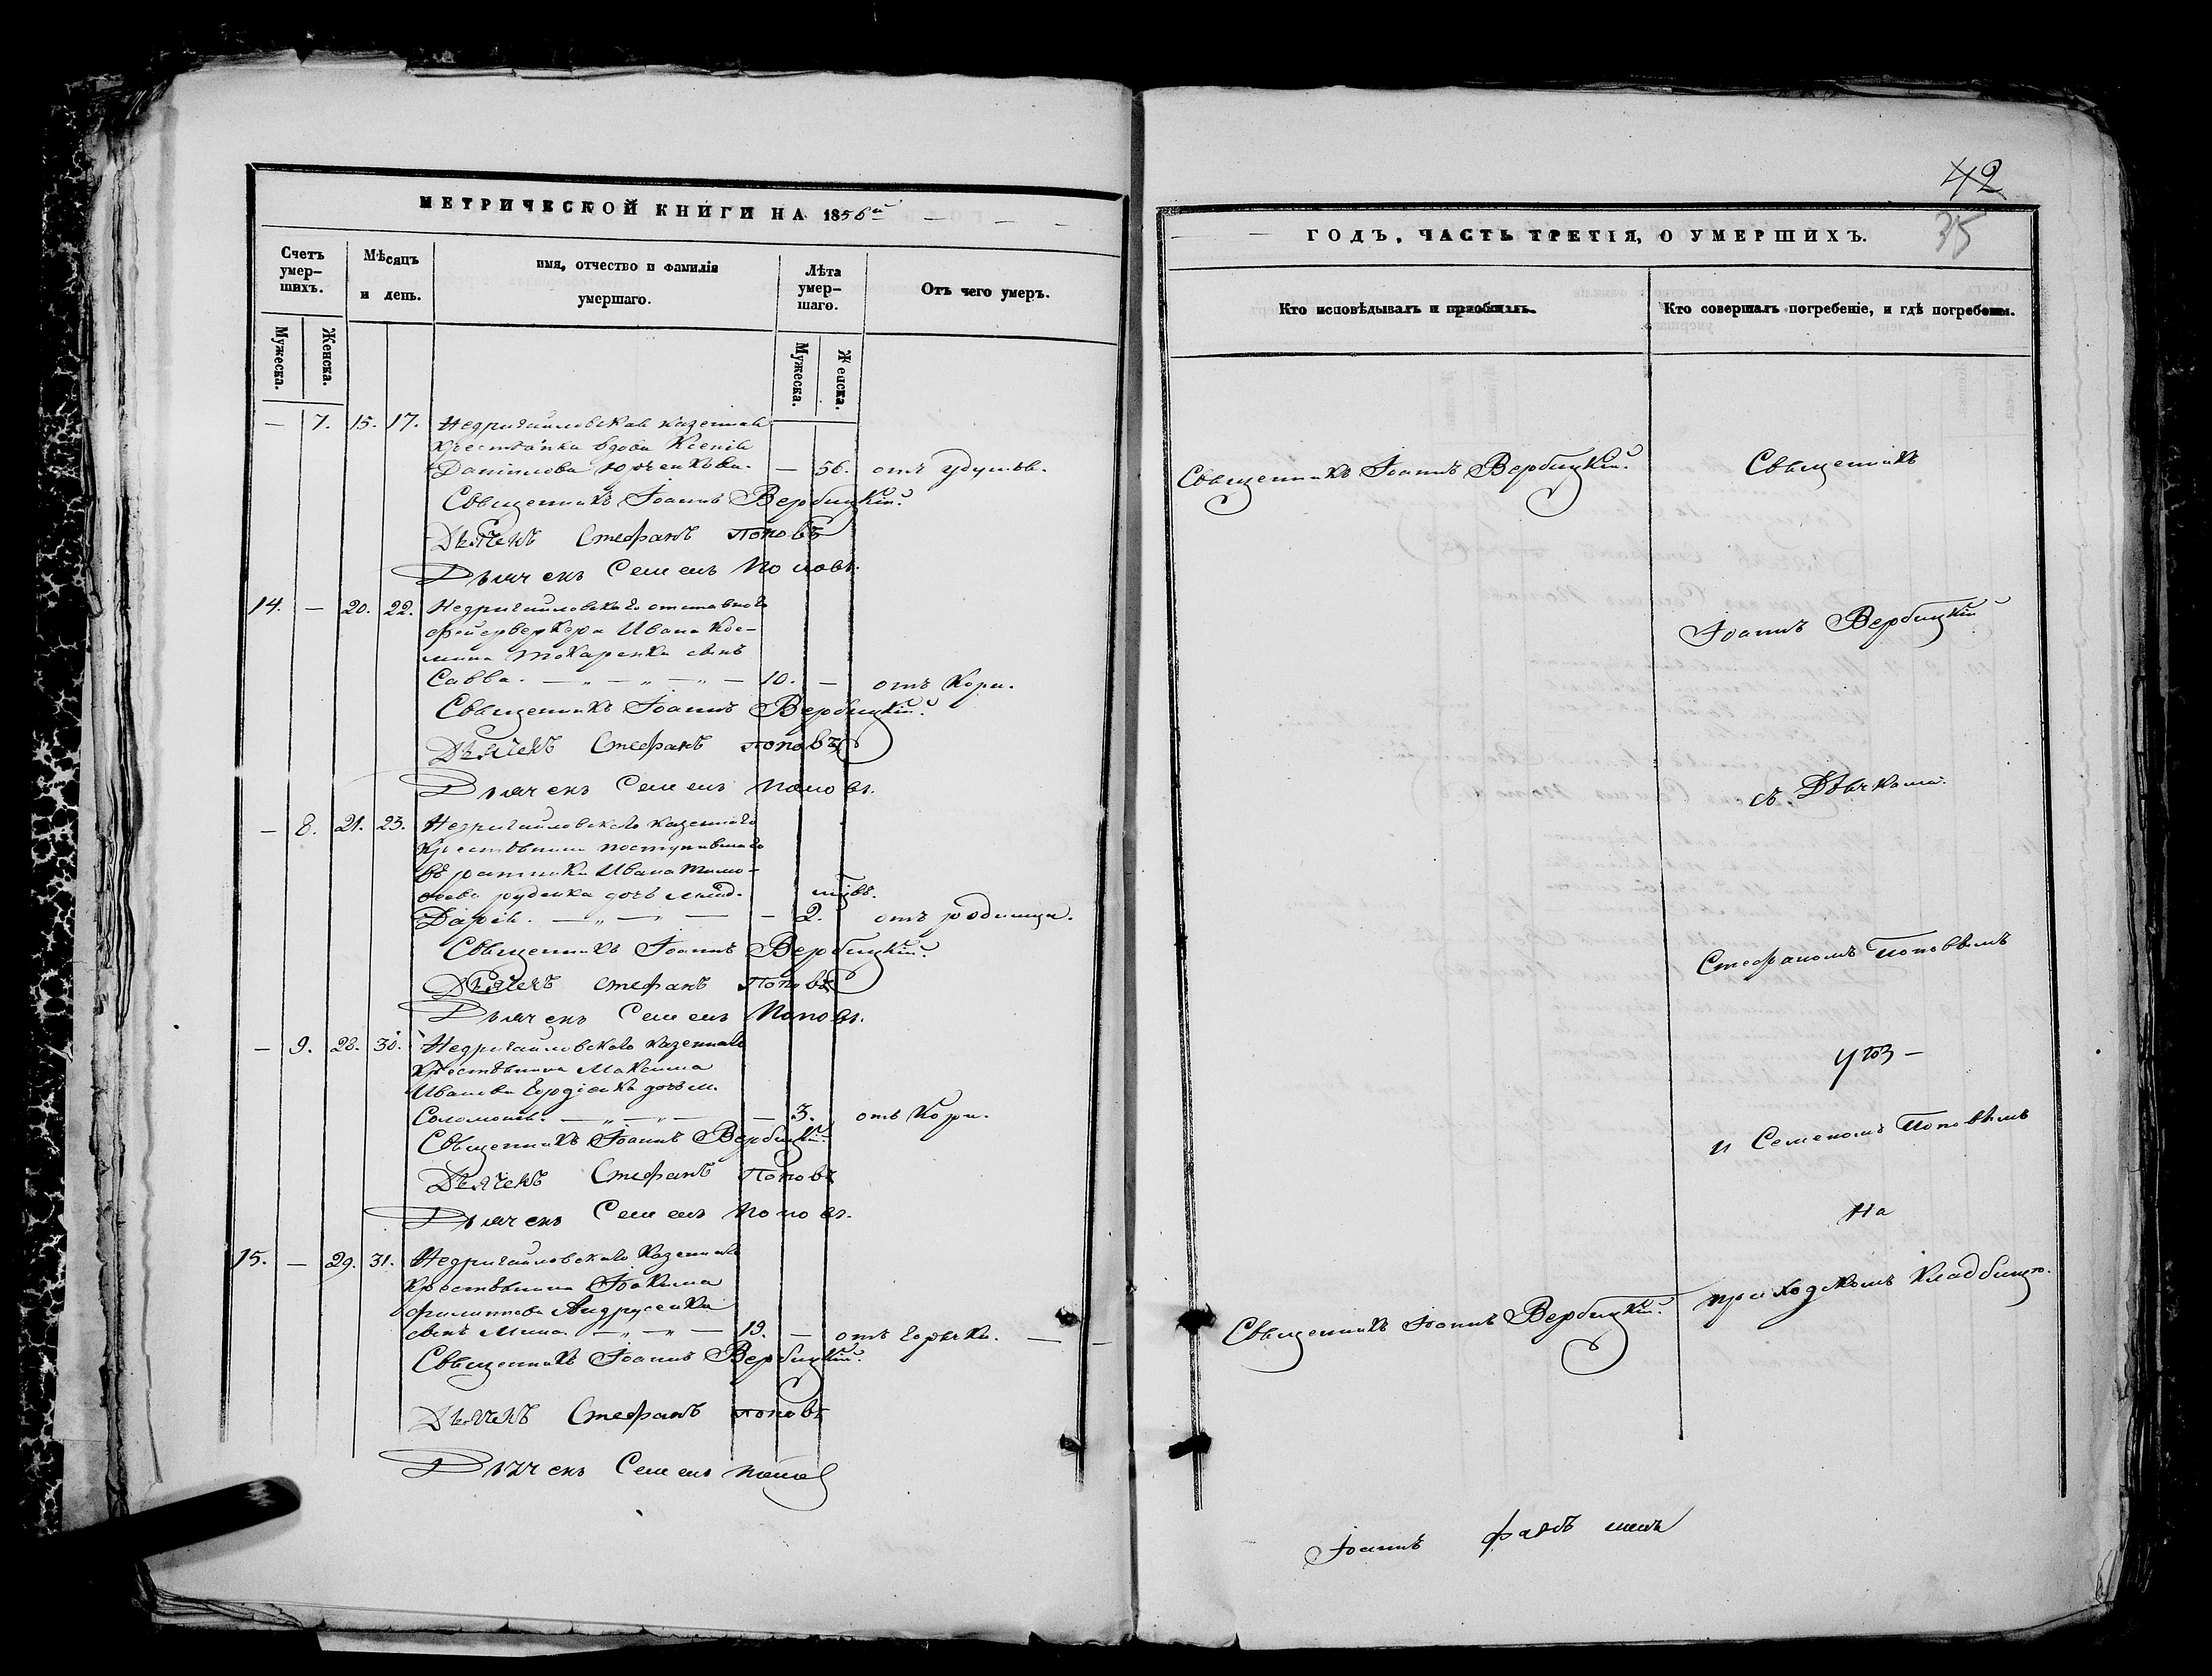 МЕТРИЧЕСКОЙ КНИГИ НА 1856й
Счетъ умер-шихъ.
Мѣсяцъ и день.
имя, отчество и фамилія умершаго.
Лѣта умер-шаго.
Отъ чего умеръ.
Мужеска.
Женска.
Мужеска.
Женска.
— 7. 15. 17. Недригайловская казенная
крестьянка вдова Ксенія
Данилова Юрченкова. — 56. отъ удушья.
Священникъ Іоаннъ Вербицкій.
Дьячекъ Стефанъ Поповъ
Дьячекъ Семенъ Поповъ.
14. — 20. 22. Недригайловскаго отставнаго
фейерверкера Ивана Кос-
мина Токаренка сынъ
Савва. — „ — „ — „ — 10. — отъ Кори.
Священникъ Іоаннъ Вербицкій.
Дьячекъ Стефанъ Поповъ
Дьячекъ Семенъ Поповъ.
— 8. 21. 23. Недригайловскаго казеннаго
крестьянина поступившаго
въ ратники Ивана Тимо-
ѳеева Руденка дочь млад.
Дарія. — „ — „ — — 2. отъ родимца.
Священникъ Іоаннъ Вербицкій.
Дьячекъ Стефанъ Поповъ
Дьячекъ Семенъ Поповъ.
— 9. 28. 30. Недригайловскаго казеннаго
крестьянина Максима
Иванова Гордіенка дочь м.
Соломонія. — „ — „ — — 3. отъ Кори.
Священникъ Іоаннъ Вербицкій.
Дьячекъ Стефанъ Поповъ
Дьячекъ Семенъ Поповъ.
15. — 29. 31. Недригайловскаго Казеннаго
крестьянина Іоакима
Филиппова Андрусенка
сынъ Мина. — „ — „ — 19. — отъ горячки. — —
Священникъ Іоаннъ Вербицкій.
Дьячекъ Стефанъ Поповъ
Дьячекъ Семенъ Поповъ
42
35
ГОДЪ, ЧАСТЬ ТРЕТІЯ, О УМЕРШИХЪ.
Кто исповѣдывалъ и пріобщалъ.
Кто совершалъ погребеніе, и гдѣ погребены.
Священникъ Іоаннъ Вербицкій.
Священникъ
Іоаннъ Вербицкій
съ Дьячками.
Стефаномъ Поповымъ
и Семеномъ Поповымъ
На
приходскомъ кладбищѣ.
Священникъ Іоаннъ Вербицкій.
Іоаннъ